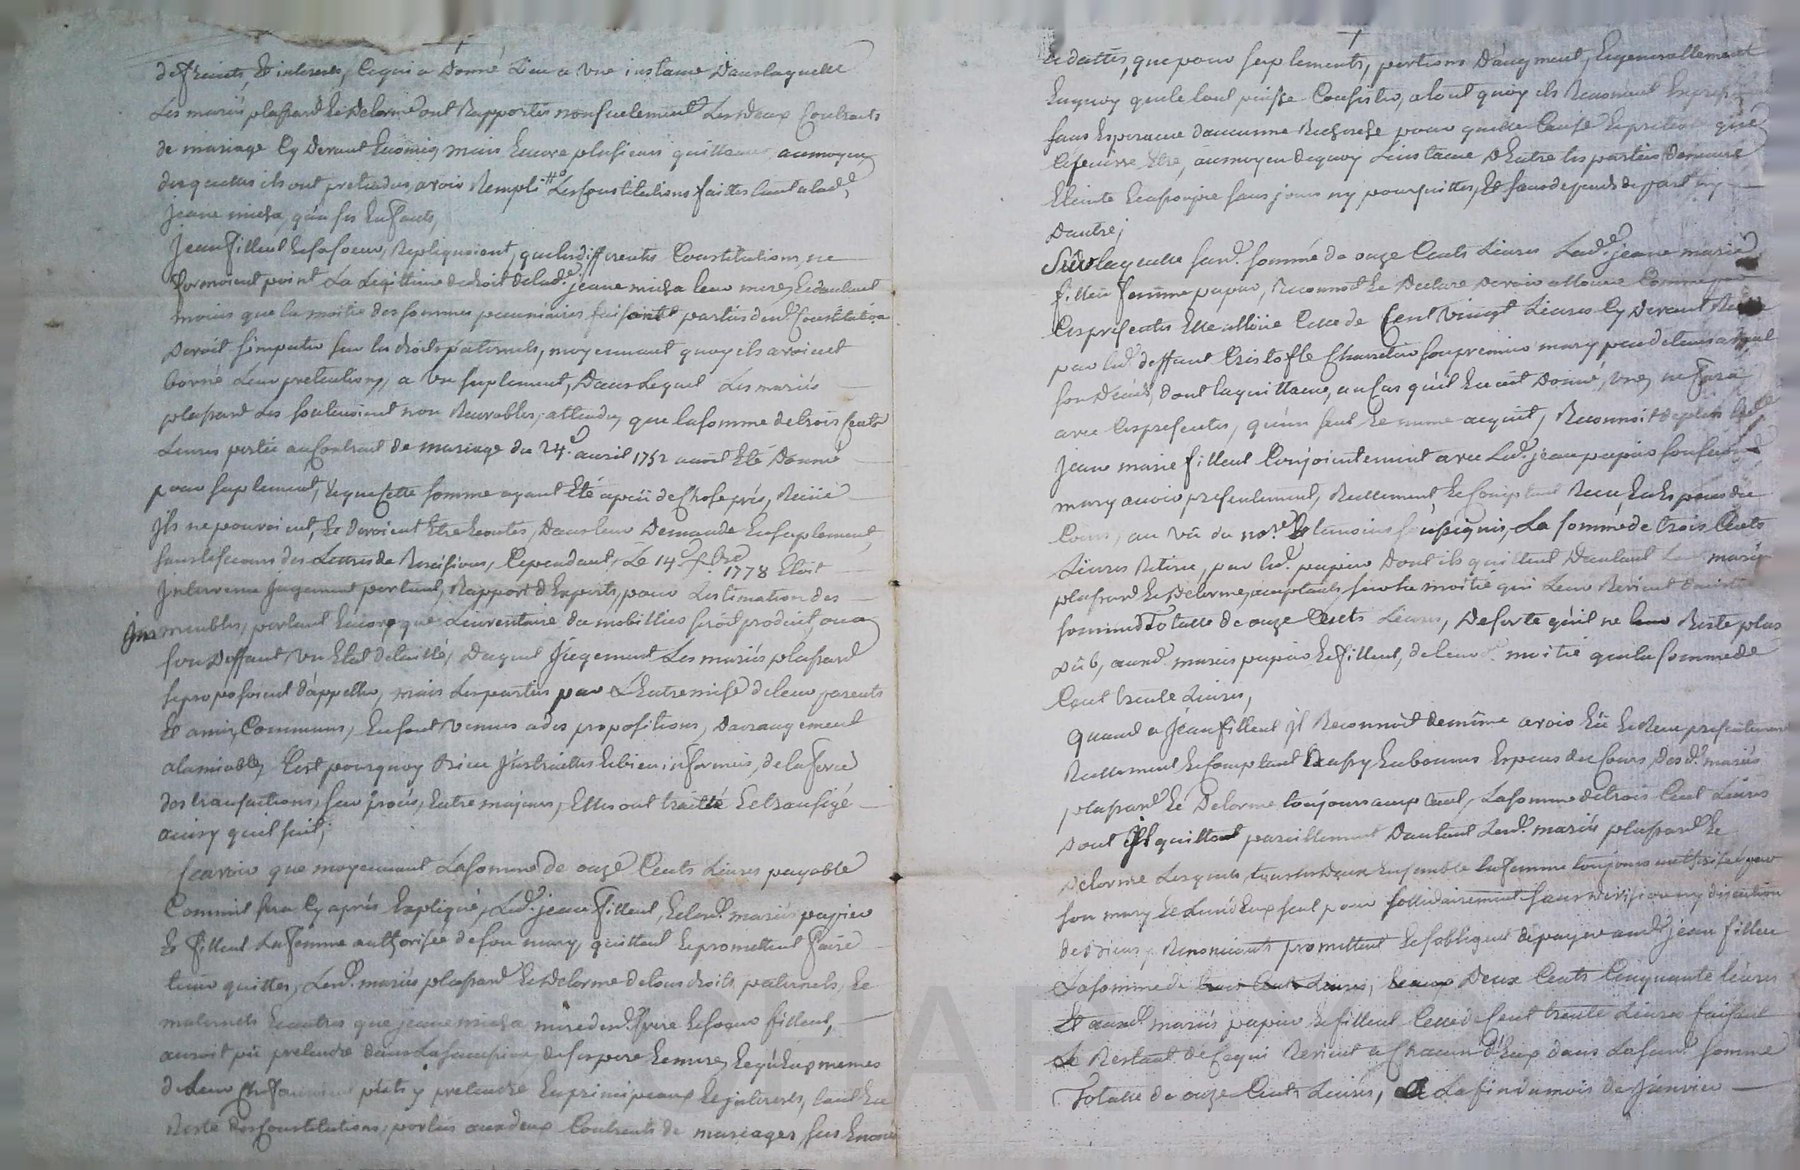 de fruits, Et interests, Ce qui a Donné Lieu a une instance Dans laquelle
Les mariés plassard Et Delorme ont Rapportés non seulement Les Deux Contrats
de mariage Cy Devant Enoncés, mais Encore plusieurs quittances, au moyen
desquelles ils ont pretendus avoir Rempli Les Constitutions faittes tant a lad.e
jeane micha, qu'a ses Enfants,
Jean filleul Et sa soeur, Repliquoient, que les differentes Constitutions, ne
formoient point La Legittime de droit de lad.e jeane micha leur mere, Et d'autant
moins que la moitié des sommes pecuniaires faisant partie desd. Constitutions
Devoit s'imputer sur les droits paternels, moyennant quoy ils avoient
borné Leur pretentions, a un suplement, Dans Lequel Les mariés
plassard Les soutenoient non Recevables, attendu, que la somme de trois Cents
Livres portée au Contrat de mariage du 24.e avril 1752 avoit Eté Donné
pour suplement, Et que Cette somme ayant Eté a peu de Chose prés, Reçüe
Ils ne pouvoient, Et devoient Etre Ecoutés, Dans leur Demande En suplement,
sans le secours des Lettres de Rescision, Cependant, Le 14 7bre 1778 Etoit
Intervenu Jugement portant, Rapport d'Experts, pour L'estimation des
Immeubles, portant Encore que L'inventaire du mobillier seroit produit, ou a
son Deffaut, un Etat detaillé, Duquel Jugement Les mariés plassard
se proposoient d'appeller, mais Les parties par L'Entremise de leur parents
Et amis, Communs, En sont venues a des propositions, D'arrangement
a l'amiable, C'est pourquoy Icelles Instruittes Et bien informés, de la force
des transactions, sur procés, Entre majeurs, Elles ont traitté Et transigé
ainsy qu'il suit;
Scavoir que moyennant La somme de onze Cents Livres payable
Comme il sera Cy aprés Expliqué, Led. jean filleul, Et lesd. mariés papier
Et filleul La femme authorisée de son mary, quittent Et promettent faire
tenir quittes, Lesd. mariés plassard Et Delorme de tous droits paternels, Et
maternels Et autres que jeane micha mere desd. frere Et soeur filleul,
auroit pû pretendre dans La succession, de ses pere Et mere, Et qu'Eux memes
de Leur Chef pretendre En principeaux Et interests, tant En
Reste des Constitutions, portées aux deux Contrats de mariages sus Enoncés
Et dattés, que pour suplements, portions D'augment, Et generallement
En quoy que le tout puisse Consister, a tout quoy ils Renoncent Expressement
sans Esperance d'aucunne Recherche pour quelle Cause Et pretexte que
Ce puisse Etre, au moyen de quoy L'instance D'Entre les parties demeure
Eteinte Et assoupie sans jour ny poursuittes, Et sans depends de part ny
D'autre;
Sur laquelle susd. somme de onze Cents Livres Lad.e jeane marie
filleul femme papier, Reconnoit Et Declare Devoir allouer Comme par
Ces presentes Elle alloüe Celle de Cent Vingt Livres Cy Devant Reçue
par led. deffunt Cristofle Charreton son premier mary peu de tems avant
son Décés, dont la quittance, au Cas qu'il En ait Donné, une, ne fera
avec Ces presentes, qu'un seul Et meme acquit, Reconnoit de plus lad.e
jeane marie filleul Conjointement avec Led. jean papier son second
mary avoir presentement, Reellement Et Comptant Receu En Especes du
Cours, au vû du no.re Et temoins soussignés, La somme de trois Cents
Livres Retirée, par led. papier Dont ils quittent D'autant Les mariés
plassard Et Delorme, acceptants, sur la moitié qui Leur Revient dans la
somme Totalle de onze Cents Livres, De sorte qu'il ne Reste plus
Dûb, auxd. mariés papier Et filleul, de leurd. moitié que la somme de
Cent trente Livres,
Quand a jean filleul il Reconnoit de même avoir Eû Et Receu presentement
Reellement Et Comptant En Especes du Cours, Desd. mariés
plassard Et Delorme toujours acceptant, La somme de trois Cent Livres
Dont Il quitte pareillement D'autant Lesd. mariés plassard Et
Delorme Lesquels, tous les Deux Ensemble La femme toujours authorisée par
son mary Et L'un d'Eux seul pour sollidairement sans division ny discution
de biens, y Renonciants promettent Et s'obligent de payer aud. jean filleul
La somme de Deux Cents Cinquante Livres
Et auxd. mariés papier Et filleul Celle de Cent trente Livres faisant
Le Restant de Ce qui Revient a Chacun d'Eux dans La susd. somme
Totalle de onze Cents Livres, a La fin du mois de Janvier